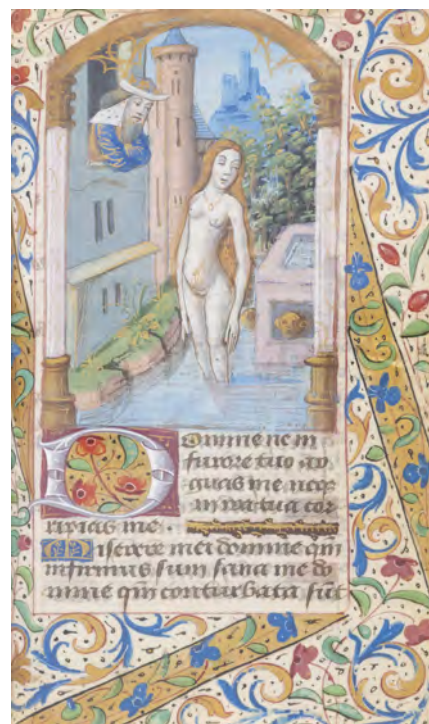 Domine ne in
furore tuo ar
guas me neqꝫ
in ira tua cor
ripias me.
Miserere mei domine qm̄
infirmus sum sana me do
mine qm̄ conturbata sūt